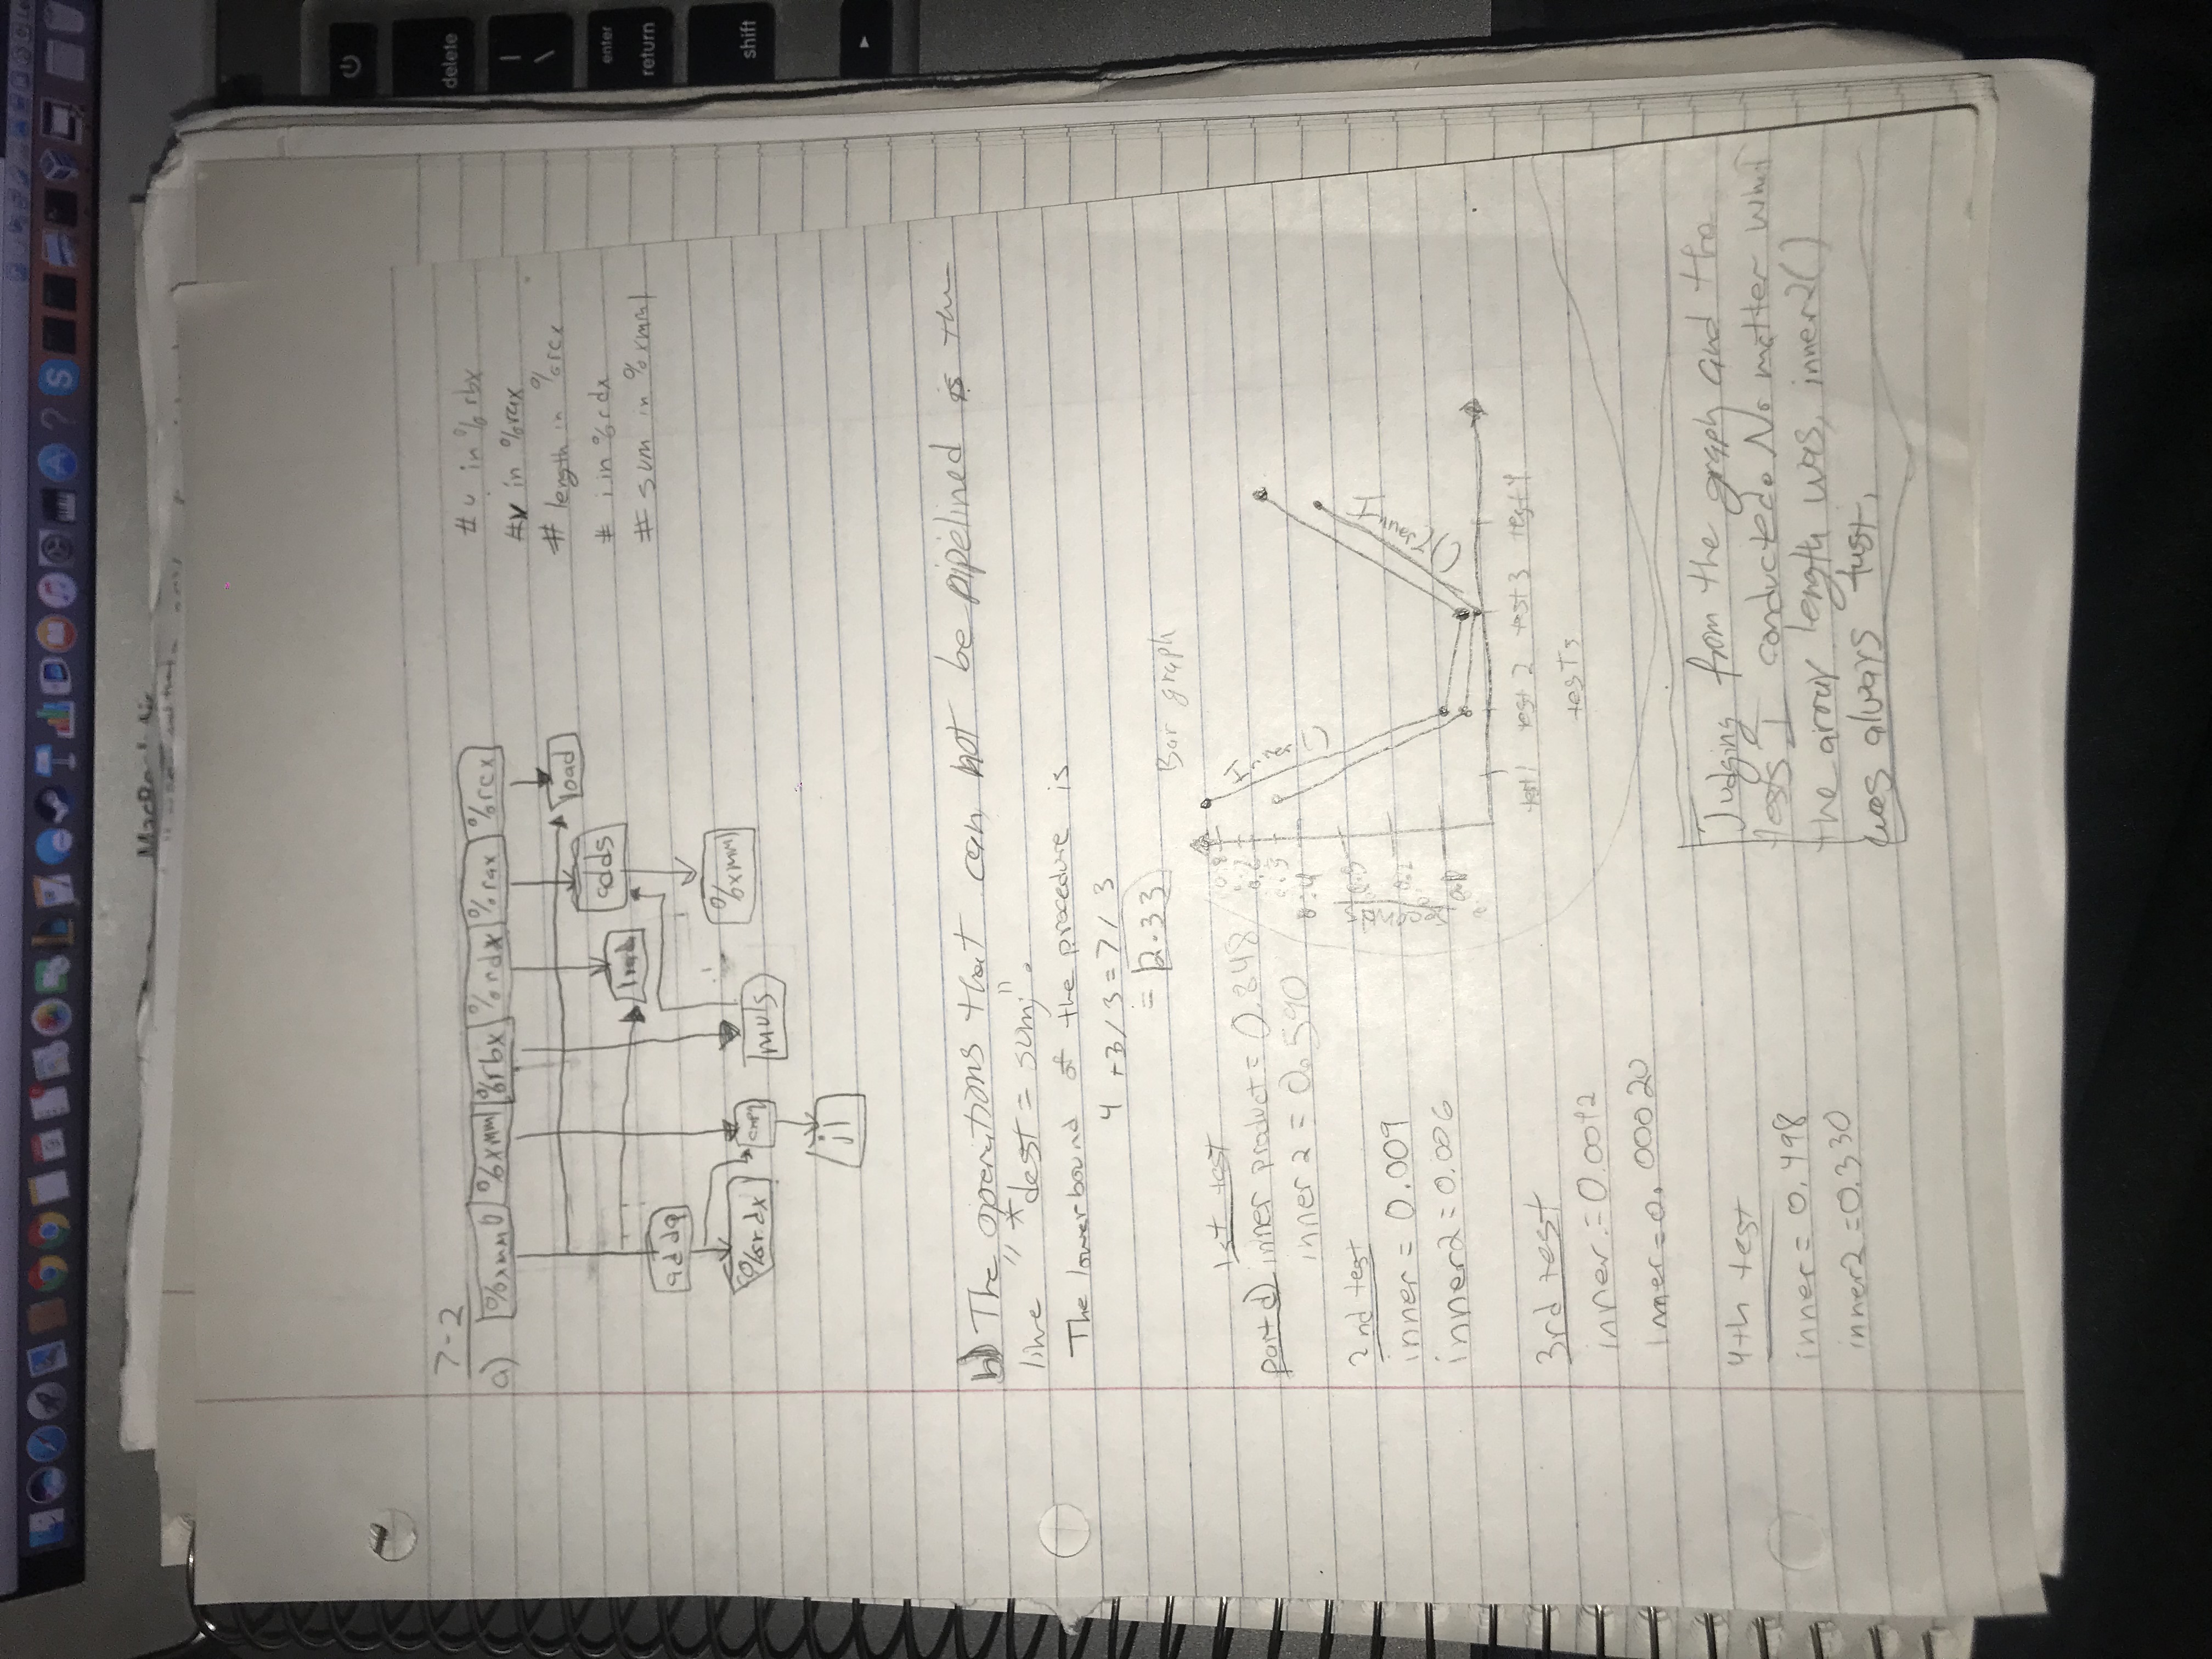 MacBook Air
delete
enter
return
shift
7-2
a) %xmm0 %xmm1 %rbx %rdx %rax %rcx
load
adds
load
addq
%rdx
cmpq
muls
%xmm1
jl
# u in %rbx
#v in %rax
# length in %rcx
# i in %rdx
# sum in %xmm1
b) The operations that can not be pipelined is the
line "*dest = sum;".
The lowerbound of the procedure is
4 +3/3=7/3
= 2.33
Bar graph
1st test
part d) inner product = 0.848
inner 2 = 0.590
2nd test
inner = 0.009
inner2=0.006
3rd test
inner = 0.0012
Inner=0.00020
4th test
inner= 0.498
inner2=0.330
seconds
0.8
0.4
0.3
Inner()
Inner2()
test 1 test 2 test 3 test 4
tests
Judging from the graph and the
tests I conducted. No matter what
the array length was, inner2()
was always fast.